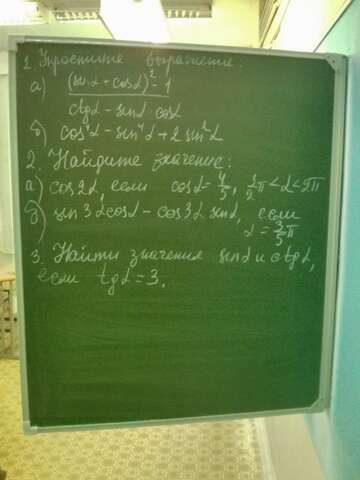 1. Упростите выражение:
а) (sinα + cosα)² - 1
ctgα - sinα cosα
б) cos⁴α - sin⁴α + 2 sin²α
2. Найдите значение:
а) cos2α, если cosα = 4/5, 3/2 π < α < 2π
б) sin3α cosα - cos3α sinα, если
α = 3/5 π
3. Найти значения sinα и ctgα,
если tgα = 3.